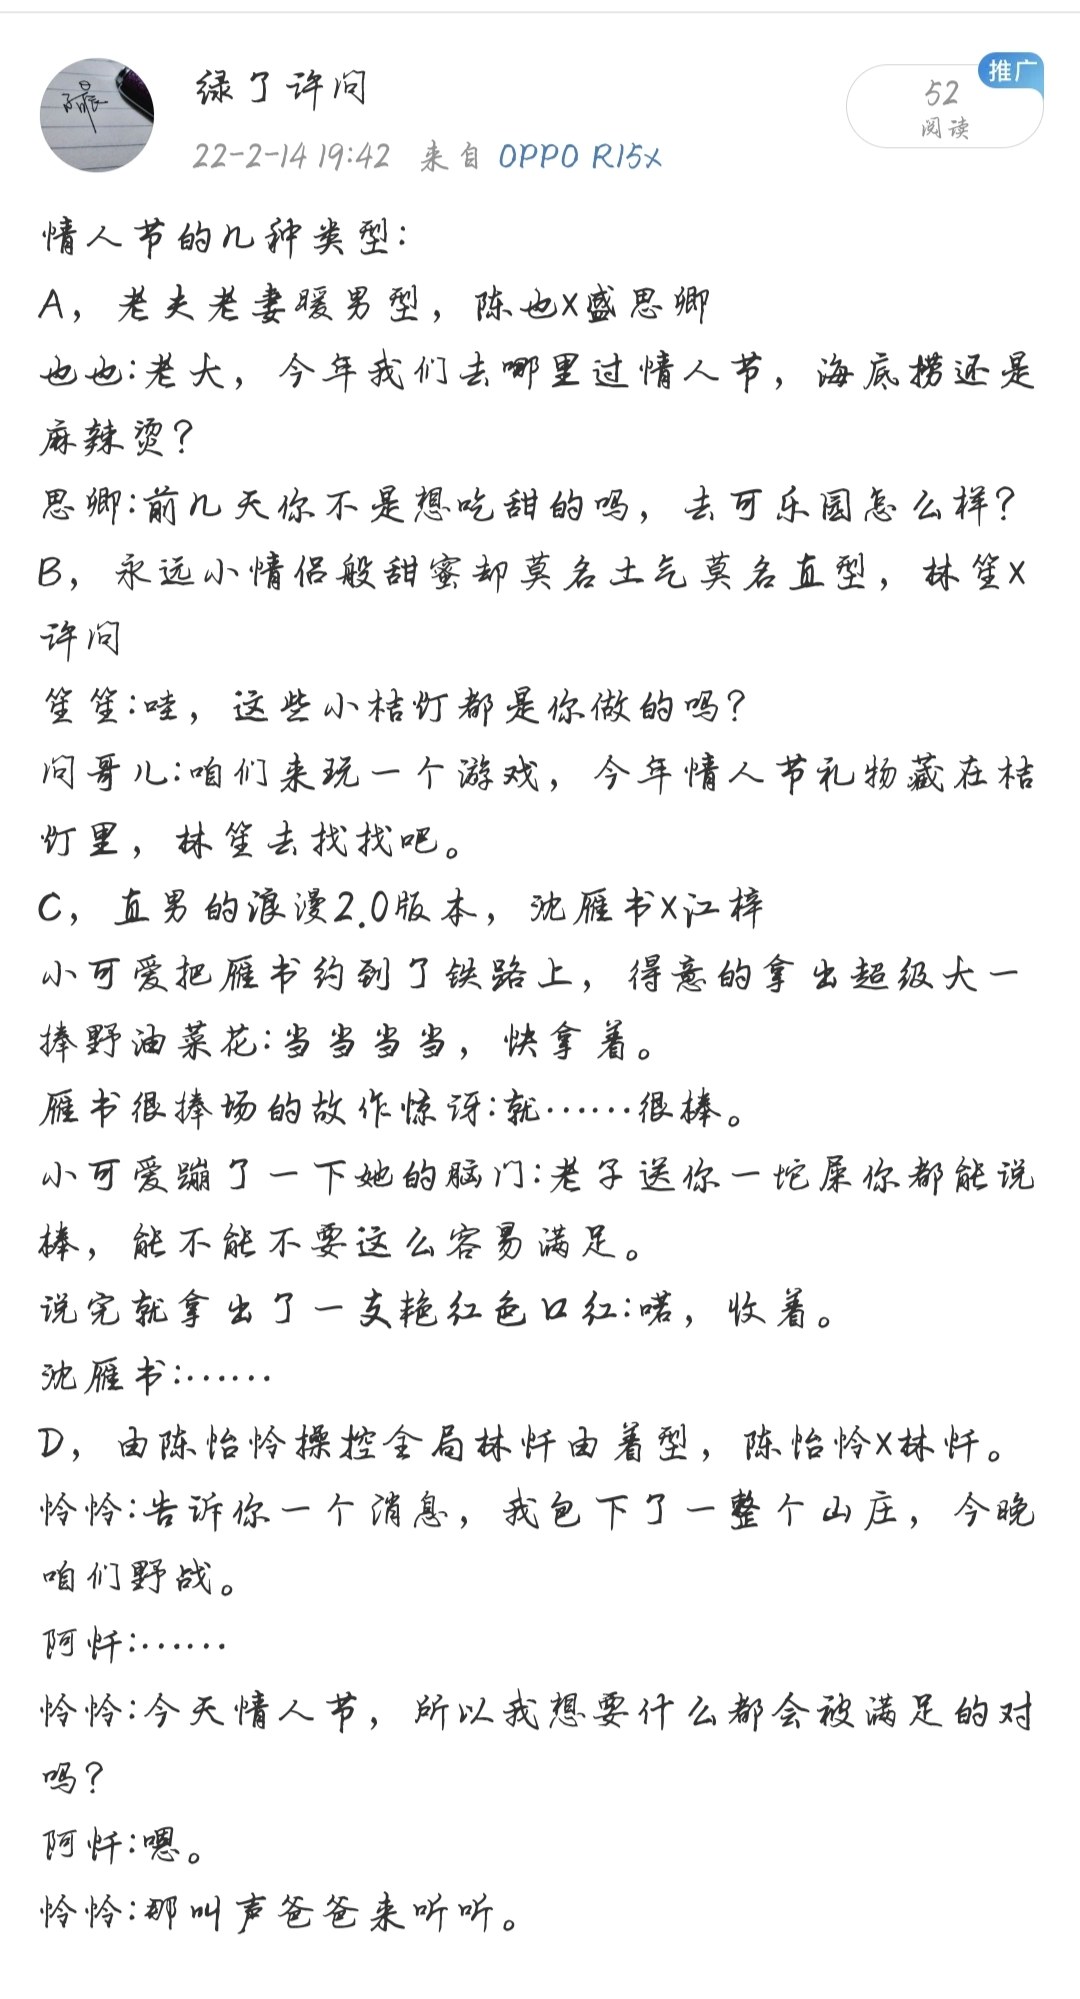 绿了许问
推广
52
阅读
22-2-14 19:42 来自 OPPO R15x
情人节的几种类型：
A，老夫老妻暖男型，陈也x盛思卿
也也：老大，今年我们去哪里过情人节，海底捞还是
麻辣烫？
思卿：前几天你不是想吃甜的吗，去可乐园怎么样？
B，永远小情侣般甜蜜却莫名土气莫名直型，林笙x
许问
笙笙：哇，这些小桔灯都是你做的吗？
问哥儿：咱们来玩一个游戏，今年情人节礼物藏在桔
灯里，林笙去找找吧。
C，直男的浪漫2.0版本，沈雁书x江梓
小可爱把雁书约到了铁路上，得意的拿出超级大一
捧野油菜花：当当当当，快拿着。
雁书很捧场的故作惊讶：就……很棒。
小可爱蹦了一下她的脑门：老子送你一坨屎你都能说
棒，能不能不要这么容易满足。
说完就拿出了一支艳红色口红：喏，收着。
沈雁书：……
D，由陈怡怜操控全局林忏由着型，陈怡怜x林忏。
怜怜：告诉你一个消息，我包下了一整个山庄，今晚
咱们野战。
阿忏：……
怜怜：今天情人节，所以我想要什么都会被满足的对
吗？
阿忏：嗯。
怜怜：那叫声爸爸来听听。